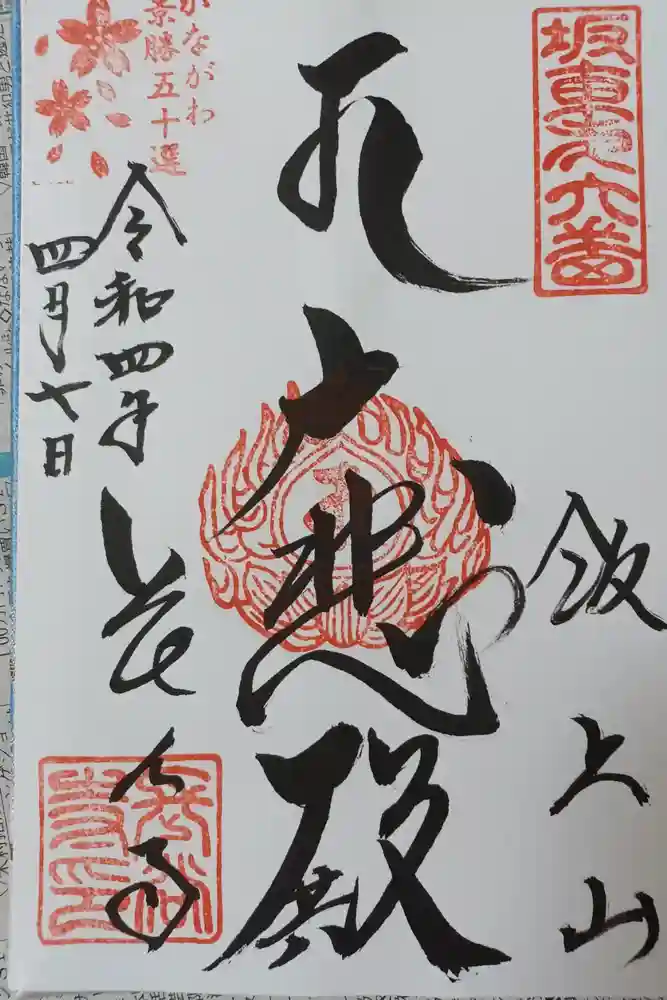 坂東第六番
飯上山
大悲殿
長谷寺
令和四年
四月七日
かながわ
景勝五十選